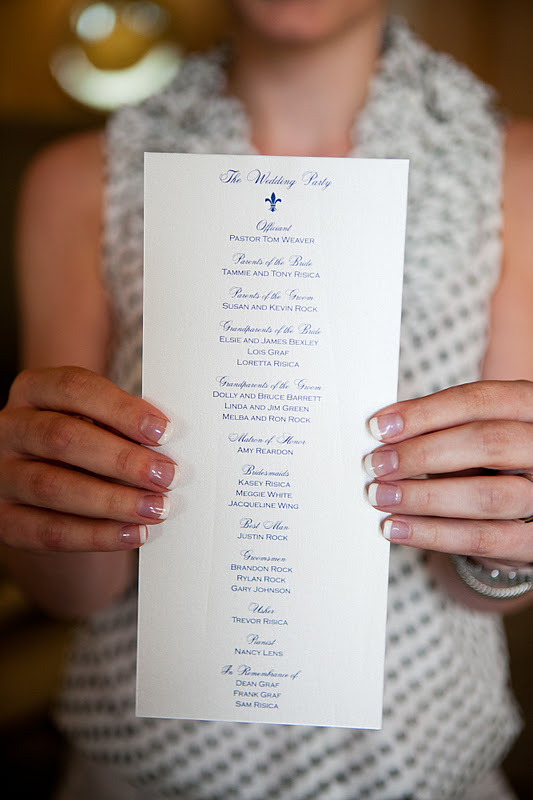 The Wedding Party
Officiant
PASTOR TOM WEAVER
Parents of the Bride
TAMMIE AND TONY RISICA
Parents of the Groom
SUSAN AND KEVIN ROCK
Grandparents of the Bride
ELSIE AND JAMES BEXLEY
LOIS GRAF
LORETTA RISICA
Grandparents of the Groom
DOLLY AND BRUCE BARRETT
LINDA AND JIM GREEN
MELBA AND RON ROCK
Matron of Honor
AMY REARDON
Bridesmaids
KASEY RISICA
MEGGIE WHITE
JACQUELINE WING
Best Man
JUSTIN ROCK
Groomsmen
BRANDON ROCK
RYLAN ROCK
GARY JOHNSON
Usher
TREVOR RISICA
Pianist
NANCY LENS
In Remembrance of
DEAN GRAF
FRANK GRAF
SAM RISICA